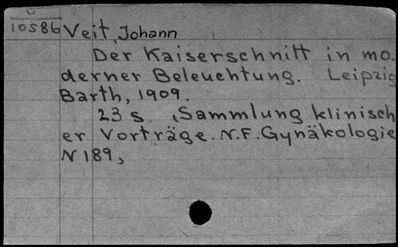 10586 Veit, Johann
Der Kaiserschnitt in mo.
derner Beleuchtung. Leipzig
Barth, 1909.
23 s. (Sammlung klinisch
er Vorträge. N.F. Gynäkologie
N 189,